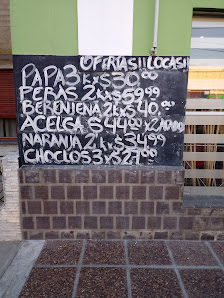 OFERTAS!! LOCAS!!
PAPA 3 k x $30.00
PERAS 2 k x $59.99
BERENJENA 2 k x $40.00
ACELGA $44.00 x 2 ATADO
NARANJA 2 k x $34.99
CHOCLOS 3 x $27.00